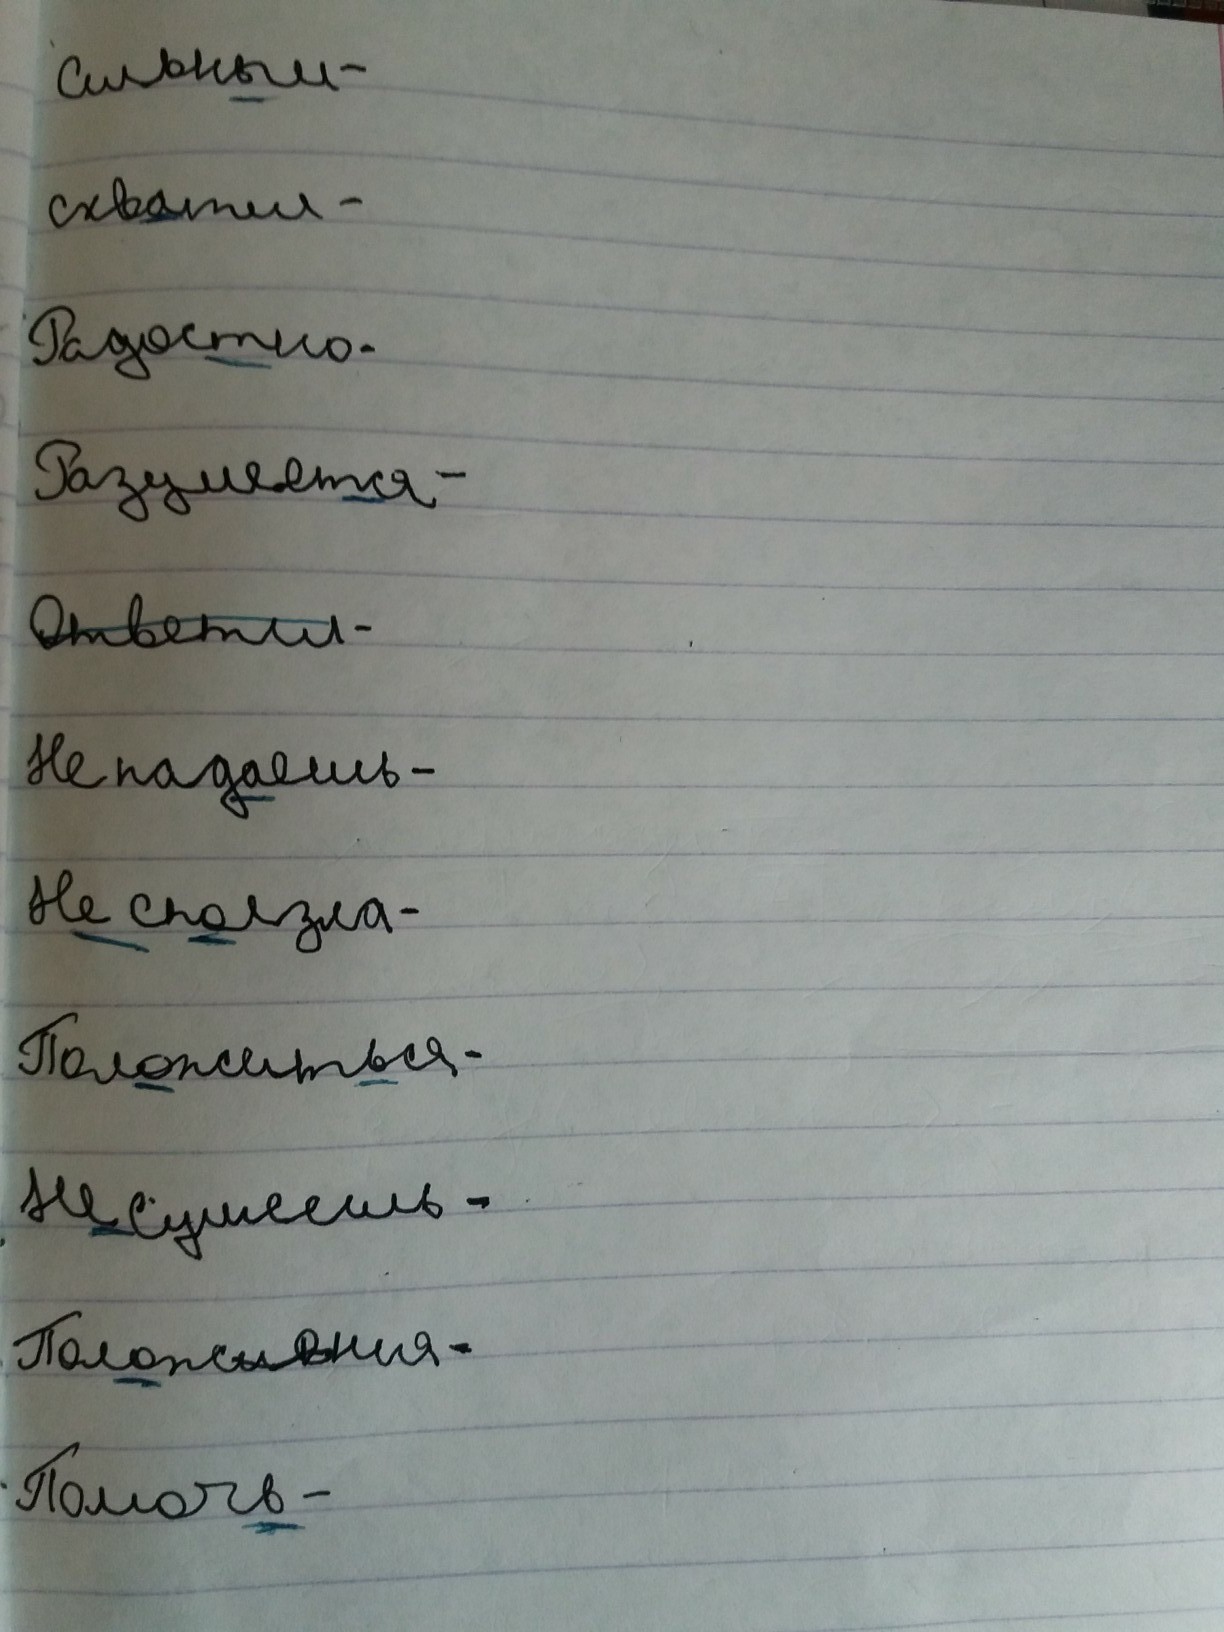 Сильным-
схватил-
Радостно-
Разумеется-
Ответил-
Не падаешь-
Не споязла-
Положиться-
Не сумеешь-
Положения-
Помочь-